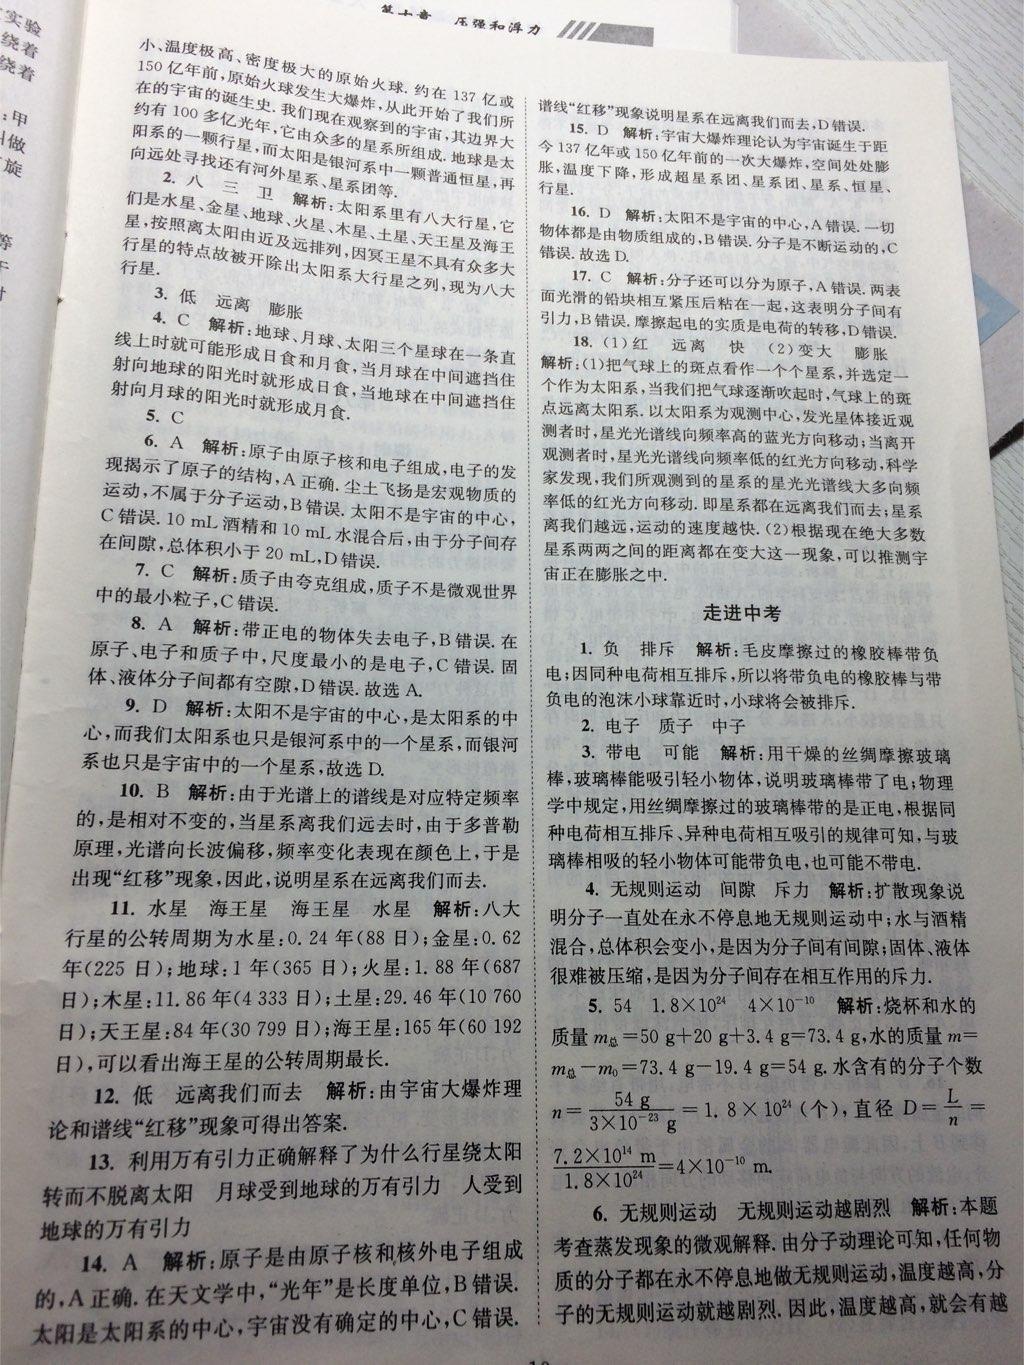 第十章 压强和浮力
实验
绕着
绕着
:甲
叫做
旋
等
小、温度极高、密度极大的原始火球. 约在 137 亿或
150 亿年前,原始火球发生大爆炸,从此开始了我们所
在的宇宙的诞生史. 我们现在观察到的宇宙,其边界大
约有 100 多亿光年,它由众多的星系所组成. 地球是太
阳系的一颗行星,而太阳是银河系中一颗普通恒星,再
向远处寻找还有河外星系、星系团等.
2. 八 三 卫 解析:太阳系里有八大行星,它
们是水星、金星、地球、火星、木星、土星、天王星及海王
星,按照离太阳由近及远排列,因冥王星不具有众多大
行星的特点故被开除出太阳系大行星之列,现为八大
行星.
3. 低 远离 膨胀
4. C 解析:地球、月球、太阳三个星球在一条直
线上时就可能形成日食和月食,当月球在中间遮挡住
射向地球的阳光时就形成日食,当地球在中间遮挡住
射向月球的阳光时就形成月食.
5. C
6. A 解析:原子由原子核和电子组成,电子的发
现揭示了原子的结构,A 正确. 尘土飞扬是宏观物质的
运动,不属于分子运动,B 错误. 太阳不是宇宙的中心,
C 错误. 10 mL 酒精和 10 mL 水混合后,由于分子间存
在间隙,总体积小于 20 mL,D 错误.
7. C 解析:质子由夸克组成,质子不是微观世界
中的最小粒子,C 错误.
8. A 解析:带正电的物体失去电子,B 错误. 在
原子、电子和质子中,尺度最小的是电子,C 错误. 固
体、液体分子间都有空隙,D 错误. 故选 A.
9. D 解析:太阳不是宇宙的中心,是太阳系的中
心,而我们太阳系也只是银河系中的一个星系,而银河
系也只是宇宙中的一个星系,故选 D.
10. B 解析:由于光谱上的谱线是对应特定频率
的,是相对不变的,当星系离我们远去时,由于多普勒
原理,光谱向长波偏移,频率变化表现在颜色上,于是
出现“红移”现象,因此,说明星系在远离我们而去.
11. 水星 海王星 海王星 水星 解析:八大
行星的公转周期为水星:0. 24 年(88 日);金星:0. 62
年(225 日);地球:1 年(365 日);火星:1. 88 年(687
日);木星:11. 86 年(4 333 日);土星:29. 46 年(10 760
日);天王星:84 年(30 799 日);海王星:165 年(60 192
日),可以看出海王星的公转周期最长.
12. 低 远离我们而去 解析:由宇宙大爆炸理
论和谱线“红移”现象可得出答案.
13. 利用万有引力正确解释了为什么行星绕太阳
转而不脱离太阳 月球受到地球的万有引力 人受到
地球的万有引力
14. A 解析:原子是由原子核和核外电子组成
的,A 正确. 在天文学中,“光年”是长度单位,B 错误.
太阳是太阳系的中心,宇宙没有确定的中心,C 错误.
谱线“红移”现象说明星系在远离我们而去,D 错误.
15. D 解析:宇宙大爆炸理论认为宇宙诞生于距
今 137 亿年或 150 亿年前的一次大爆炸,空间处处膨
胀,温度下降,形成超星系团、星系团、星系、恒星、
行星.
16. D 解析:太阳不是宇宙的中心,A 错误. 一切
物体都是由物质组成的,B 错误. 分子是不断运动的,C
错误. 故选 D.
17. C 解析:分子还可以分为原子,A 错误. 两表
面光滑的铅块相互紧压后粘在一起,这表明分子间有
引力,B 错误. 摩擦起电的实质是电荷的转移,D 错误.
18. (1)红 远离 快 (2)变大 膨胀
解析:(1)把气球上的斑点看作一个个星系,并选定一
个作为太阳系,当我们把气球逐渐吹起时,气球上的斑
点远离太阳系. 以太阳系为观测中心,发光星体接近观
测者时,星光光谱线向频率高的蓝光方向移动;当离开
观测者时,星光光谱线向频率低的红光方向移动,科学
家发现,我们所观测到的星系的星光光谱线大多向频
率低的红光方向移动. 即星系都在远离我们而去;星系
离我们越远,运动的速度越快. (2)根据现在绝大多数
星系两两之间的距离都在变大这一现象,可以推测宇
宙正在膨胀之中.
走进中考
1. 负 排斥 解析:毛皮摩擦过的橡胶棒带负
电;因同种电荷相互排斥,所以将带负电的橡胶棒与带
负电的泡沫小球靠近时,小球将会被排斥.
2. 电子 质子 中子
3. 带电 可能 解析:用干燥的丝绸摩擦玻璃
棒,玻璃棒能吸引轻小物体,说明玻璃棒带了电;物理
学中规定,用丝绸摩擦过的玻璃棒带的是正电,根据同
种电荷相互排斥、异种电荷相互吸引的规律可知,与玻
璃棒相吸的轻小物体可能带负电,也可能不带电.
4. 无规则运动 间隙 斥力 解析:扩散现象说
明分子一直处在永不停息地无规则运动中;水与酒精
混合,总体积会变小,是因为分子间有间隙;固体、液体
很难被压缩,是因为分子间存在相互作用的斥力.
5. 54 1.8×10²⁴ 4×10⁻¹⁰ 解析:烧杯和水的
质量 m总=50 g+20 g+3. 4 g=73. 4 g,水的质量 m=
m总-m₀=73. 4 g-19. 4 g=54 g. 水含有的分子个数
n= 54 g / 3×10⁻²³ g =1. 8×10²⁴ (个),直径 D= L/n =
7.2×10¹⁴ m / 1.8×10²⁴ =4×10⁻¹⁰ m.
6. 无规则运动 无规则运动越剧烈 解析:本题
考查蒸发现象的微观解释. 由分子动理论可知,任何物
质的分子都在永不停息地做无规则运动,温度越高,分
子的无规则运动就越剧烈. 因此,温度越高,就会有越